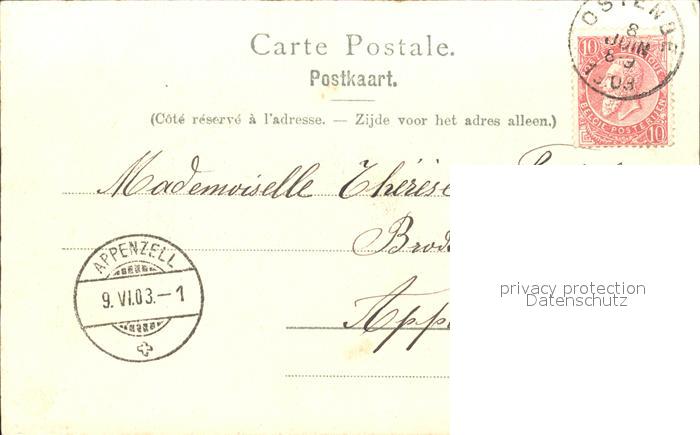 Carte Postale.
Postkaart.
(Côté réservé à l'adresse. — Zijde voor het adres alleen.)
OSTENDE
8
JUIN
8-9
03
10
10
BELGIE-POSTERIJEN
Mademoiselle Thérèse
Brod
App
APPENZELL
9.VI.03.—1
privacy protection
Datenschutz